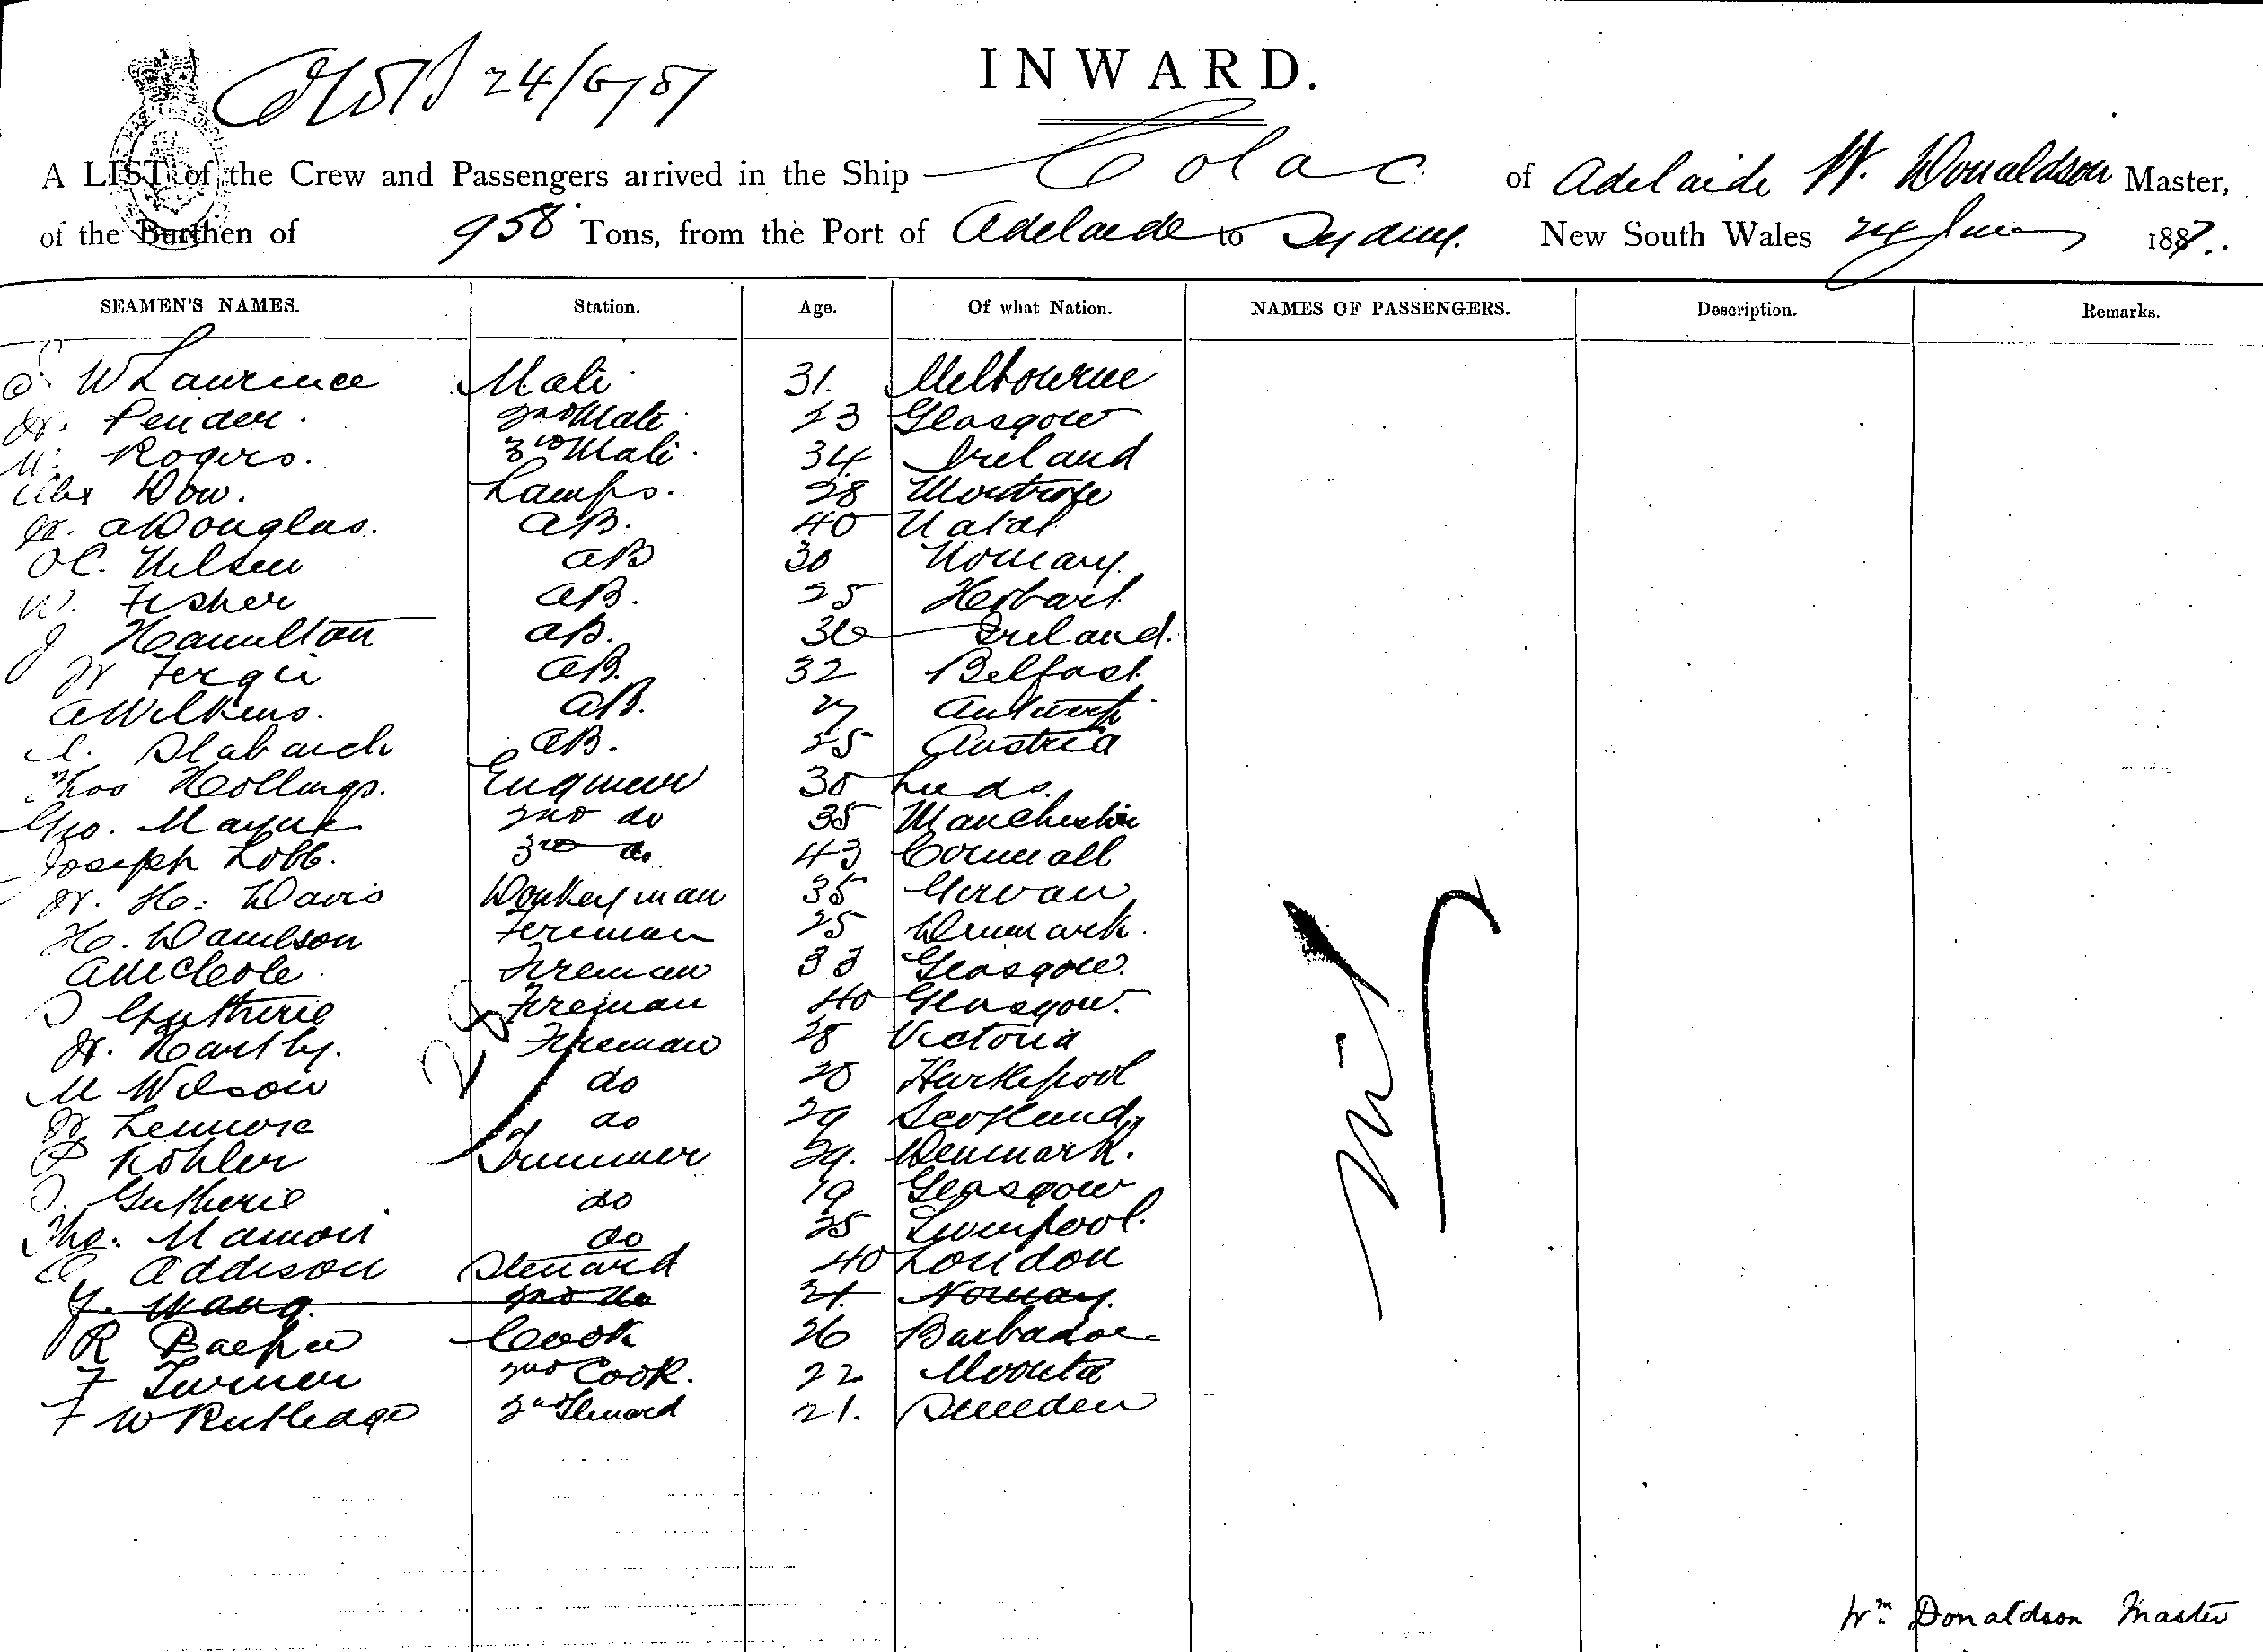 24/6/87
INWARD.
A LIST of the Crew and Passengers arrived in the Ship Colac of Adelaide W. Donaldson Master,
of the Burthen of 958 Tons, from the Port of Adelaide to Sydney. New South Wales 24 June 1887.
SEAMEN'S NAMES. Station. Age. Of what Nation. NAMES OF PASSENGERS. Description. Remarks.
W Laurence Mate 31. Melbourne
Pender. 2nd Mate 23 Glasgow
Rogers. 3rd Mate. 34 Ireland
Alex Dow. Lamps. 28 Montrose
Douglas. AB. 40 Natal
O C. Nilsen AB 30 Norway.
W. Fisher AB. 25 Hobart
J Hamilton AB. 36 Ireland.
AB. 32 Belfast
A Wilkens. AB. 27 Antwerp
AB. 25 Austria
Thos Hollings. Engineer 30 Leeds.
Geo. 2nd do 35 Manchester
Joseph Lobb. 3rd do 43 Cornwall
H. Davis Donkeyman 35 Girvan
H. Danilson Fireman 25 Denmark.
Fireman 33 Glasgow.
Gutherie Fireman 40 Glasgow.
Fireman 28 Victoria
M Wilson do 28 Hartlepool
do 29 Scotland,
P Kohler Trimmer 29. Denmark.
Gutherie do 19 Glasgow
Tho. do 25 Liverpool.
Addison Steward 40 London
2nd do 21. Norway.
R Cook 26 Barbadoe
F Turner 2nd Cook. 22 Moonta
F W Rutledge 2nd Steward 21. Sweden
28
Nil
Wm. Donaldson Master